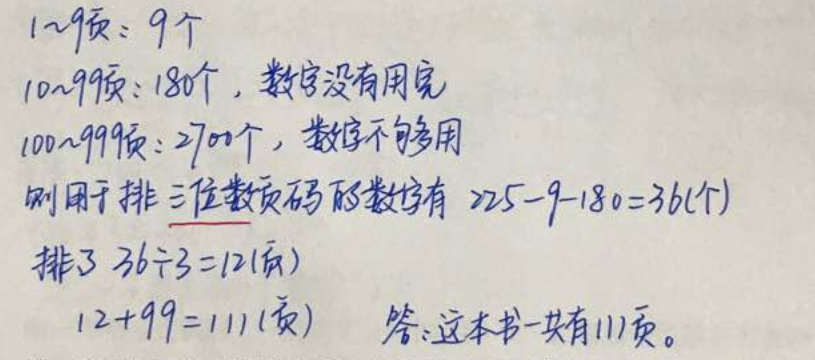 1~9页：9个
10~99页：180个，数字没有用完
100~999页：2700个，数字不够用
则用于排三位数页码的数字有 225-9-180=36(个)
排了 36÷3=12(页)
12+99=111(页) 答：这本书一共有111页。